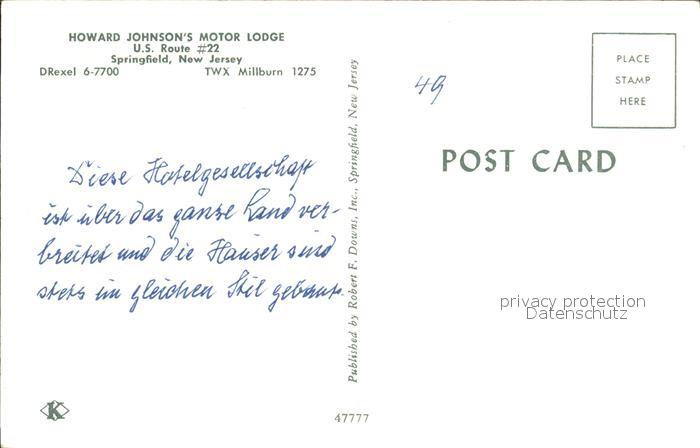 HOWARD JOHNSON'S MOTOR LODGE
U.S. Route #22
Springfield, New Jersey
DRexel 6-7700 TWX Millburn 1275
Diese Hotelgesellschaft
ist über das ganze Land ver-
breitet und die Häuser sind
stets im gleichen Stil gebaut.
K
Published by Robert F. Downs, Inc., Springfield, New Jersey
47777
49
PLACE
STAMP
HERE
POST CARD
privacy protection
Datenschutz